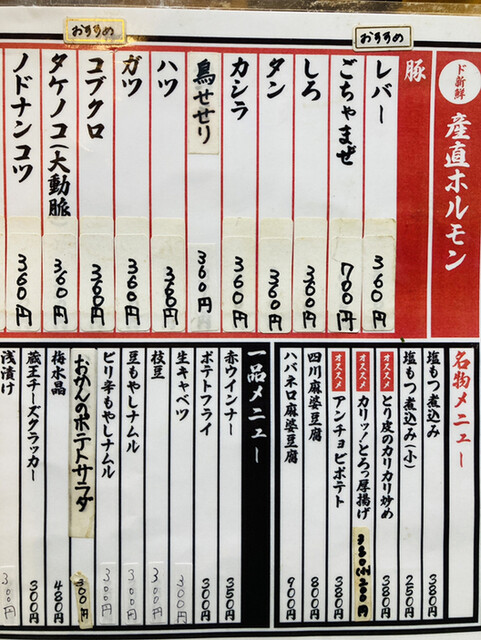 おすすめ
おすすめ
ド新鮮
産直ホルモン
豚
レバー 360円
ごちゃまぜ 700円
しろ 360円
タン 360円
カシラ 360円
鳥せせり 360円
ハツ 360円
ガツ 360円
コブクロ 360円
タケノコ(大動脈) 360円
ノドナンコツ 360円
名物メニュー
塩もつ煮込み 380円
塩もつ煮込み(小) 250円
オススメ とり皮のカリカリ炒め 380円
オススメ カリッ!とろっ厚揚げ
オススメ アンチョビポテト 380円
四川麻婆豆腐 800円
ハバネロ麻婆豆腐 900円
一品メニュー
赤ウインナー 350円
ポテトフライ 300円
生キャベツ 300円
枝豆 300円
豆もやしナムル 300円
ピリ辛もやしナムル 300円
おかんのポテトサラダ 300円
梅水晶 480円
蔵王チーズクラッカー 300円
浅漬け 300円